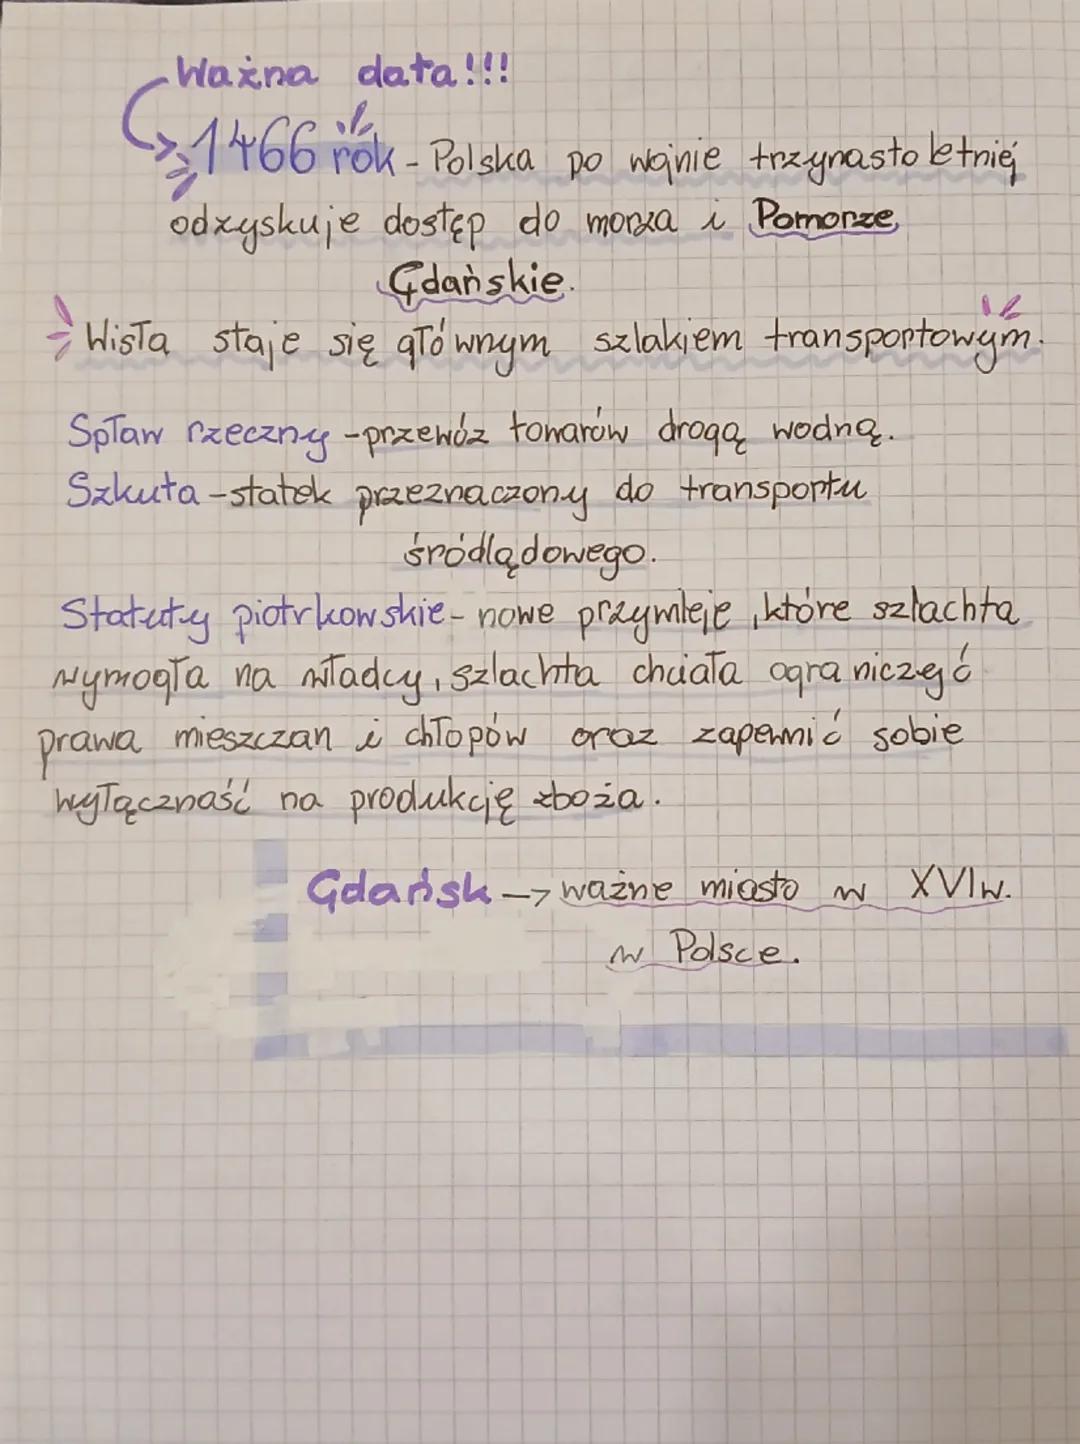 Ważna data!!!
1466 rok - Polska po wojnie trzynastoletniej
odzyskuje dostęp do morza i Pomorze
Gdańskie.
Wisła staje się głównym szlakiem transportowym.
Spław rzeczny - przewóz towarów drogą wodną.
Szkuta - statek przeznaczony do transportu
śródlądowego.
Statuty piotrkowskie - nowe przymleje, które szlachta
wymogła na władcy, szlachta chciała ograniczyć
prawa mieszczan i chłopów oraz zapewnić sobie
wyłączność na produkcję zboża.
Gdańsk → ważne miasto w XVIw.
w Polsce.